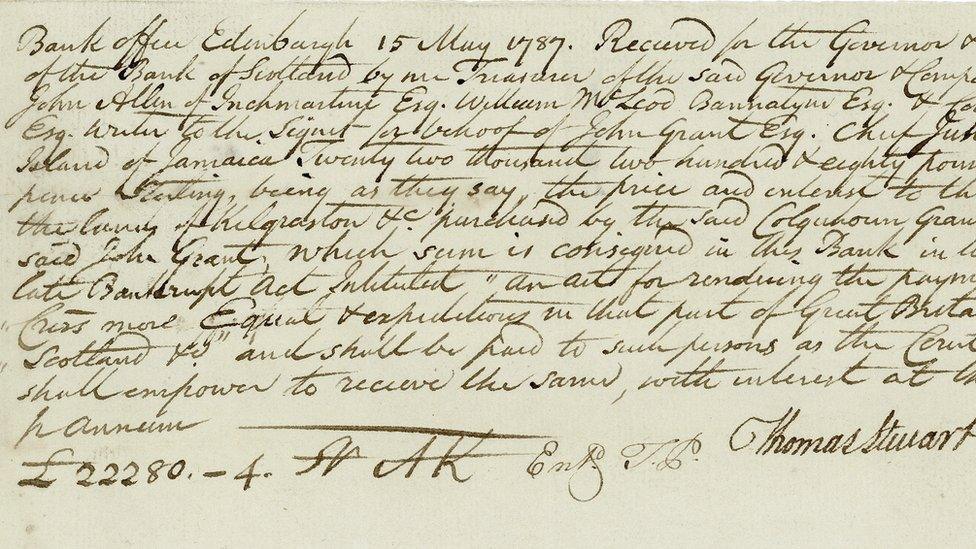 Bank office Edenburgh 15 May 1787. Recieved for the Governor &
of the Bank of Scotland by me Treasurer of the said Governor & Comp
John Allen of Inchmartine Esq. William McLeod Bannatyne Esq. &
Esq. Writer to the Signet for behoof of John Grant Esq. Cheif Jus
Island of Jamaica Twenty two thousand two hundred & eighty poun
pence Sterling, being as they say, the price and interest to th
the lands of Kilgraston &c. purchased by the said Colquhoun Gran
said John Grant, which sum is consigned in this Bank in
late Bankrupt Act Intituled "an act for rendering the paym
" Crers more Equal & expeditious in that part of Great Brita
" Scotland &c" and shall be paid to such persons as the Court
shall empower to recieve the same, with interest at th
pr Annum
£22280.-4. AK Entd. T.P. Thomas Stewart